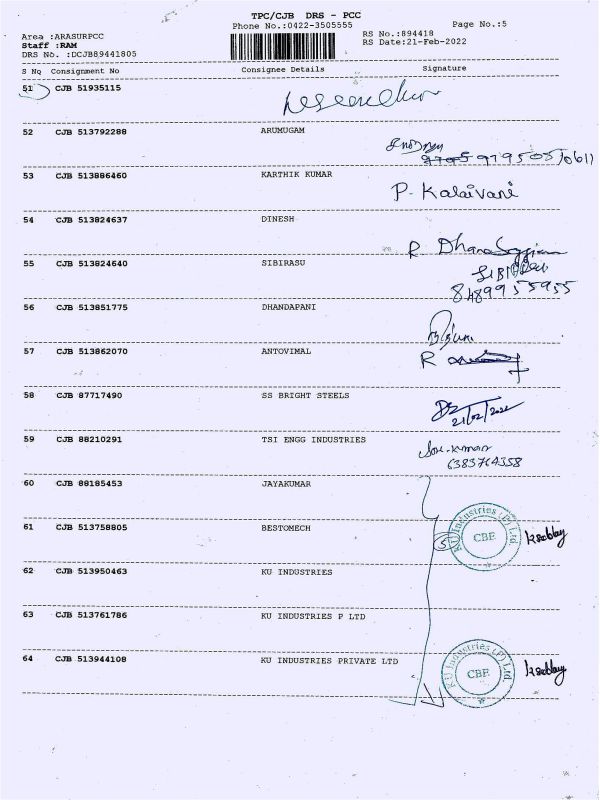 TPC/CJB DRS - PCC
Phone No.:0422-3505555
Page No.:5
Area :ARASURPCC
RS No.:894418
Staff :RAM
RS Date:21-Feb-2022
DRS No. :DCJB89441805
S No Consignment No Consignee Details Signature
51 CJB 51935115
52 CJB 513792288 ARUMUGAM
9795050611
53 CJB 513886460 KARTHIK KUMAR
P. Kalaivani
54 CJB 513824637 DINESH
R
55 CJB 513824640 SIBIRASU
8489955955
56 CJB 513851775 DHANDAPANI
57 CJB 513862070 ANTOVIMAL
R
58 CJB 87717490 SS BRIGHT STEELS
21/02/2022
59 CJB 88210291 TSI ENGG INDUSTRIES
6383764358
60 CJB 88185453 JAYAKUMAR
61 CJB 513758805 BESTOMECH
5 KU Industries (P) Ltd. CBE
62 CJB 513950463 KU INDUSTRIES
63 CJB 513761786 KU INDUSTRIES P LTD
64 CJB 513944108 KU INDUSTRIES PRIVATE LTD
KU Industries (P) Ltd. CBE